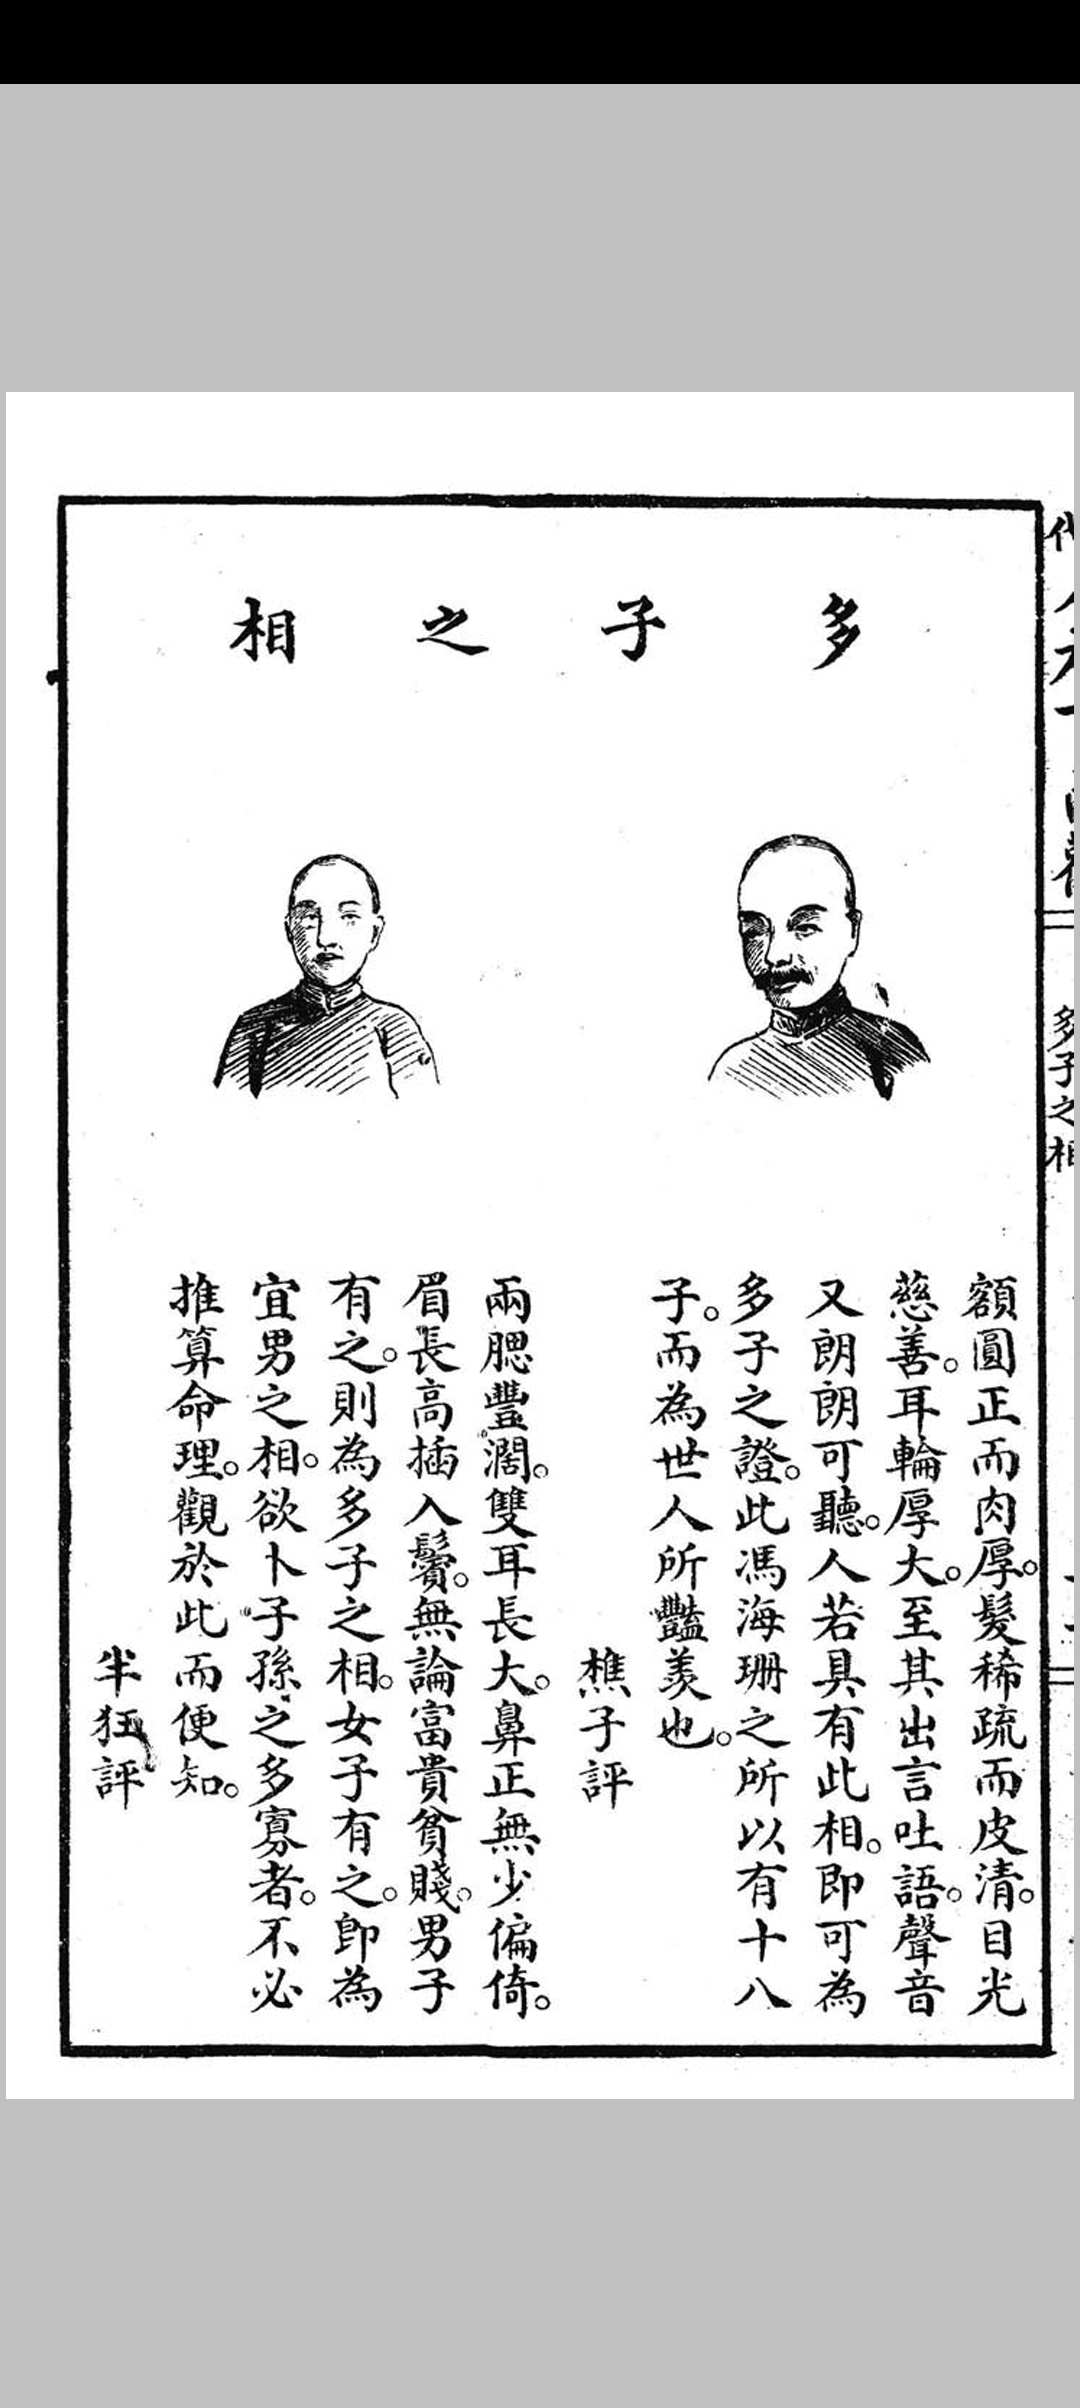 多子之相
額圓正而肉厚。髮稀疏而皮清。目光
慈善。耳輪厚大。至其出言吐語。聲音
又朗朗可聽。人若具有此相。即可為
多子之證。此馮海珊之所以有十八
子。而為世人所豔羨也。
樵子評
兩腮豐濶。雙耳長大。鼻正無少偏倚。
眉長高插入鬢。無論富貴貧賤。男子
有之。則為多子之相。女子有之。即為
宜男之相。欲卜子孫之多寡者。不必
推算命理。觀於此而便知。
半狂評
多子之相